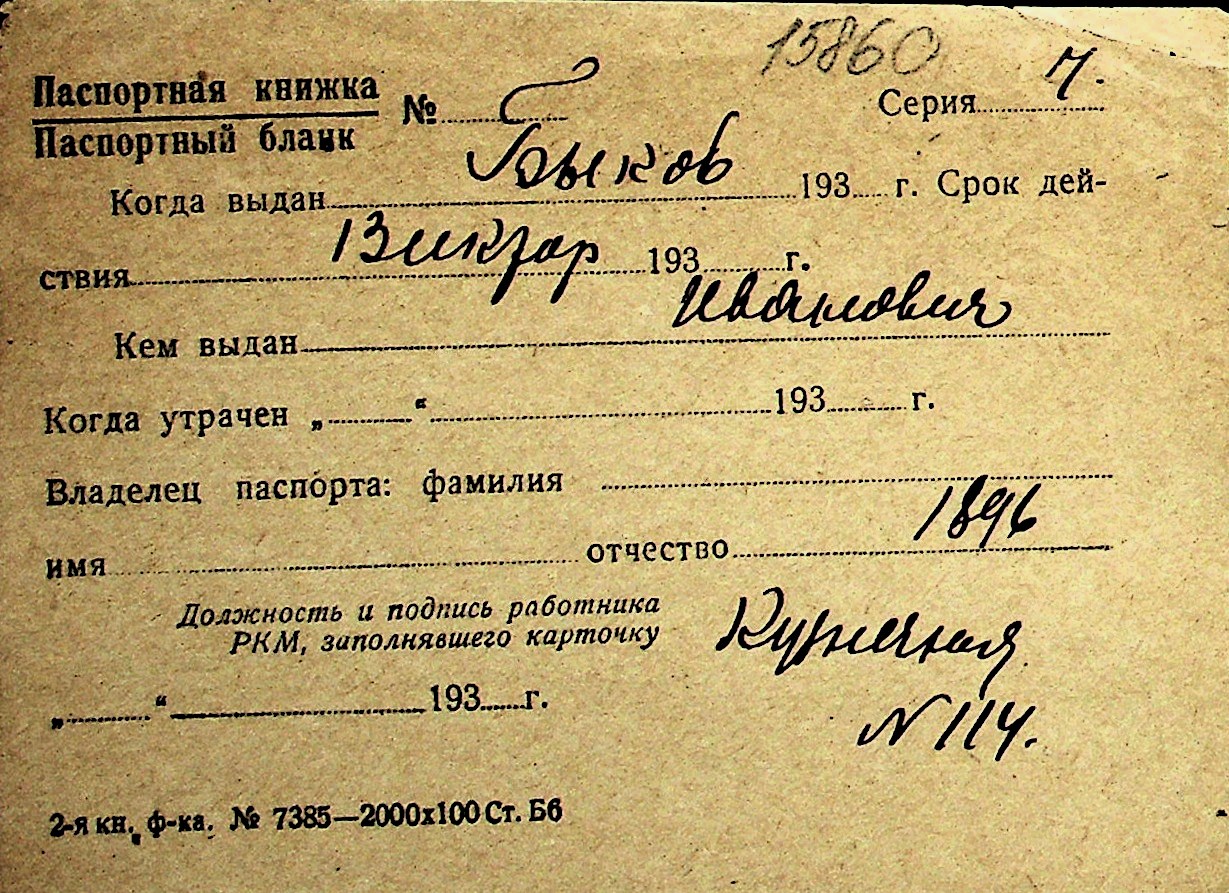 15860
Паспортная книжка
Паспортный бланк № Серия 7.
Быков
Когда выдан 193 г. Срок дей-
Виктор
ствия 193 г.
Иванович
Кем выдан
Когда утрачен „ “ 193 г.
Владелец паспорта: фамилия
1896
имя отчество
Должность и подпись работника
РКМ, заполнявшего карточку
„ “ 193 г.
N 114.
2-я кн. ф-ка. № 7385—2000х100 Ст. Бб